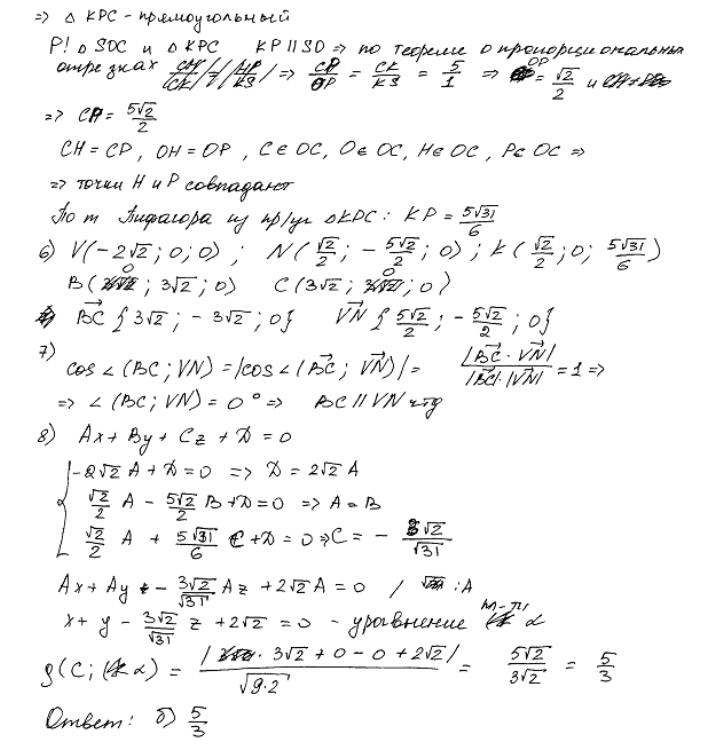 => △ KPC - прямоугольный
P! △ SOC и △ KPC KP || SO => по теореме о пропорциональных
отрезках => CP/OP = CK/KS = 5/1 => OP = √2/2 и
=> CP = 5√2/2
CH = CP, OH = OP, C ∈ OC, O ∈ OC, H ∈ OC, P ∈ OC =>
=> точки H и P совпадают
По т Пифагора из пр/уг △KPC: KP = 5√31/6
6) V(-2√2; 0; 0); N(√2/2; -5√2/2; 0); K(√2/2; 0; 5√31/6)
B(0; 3√2; 0) C(3√2; 0; 0)
BC {3√2; -3√2; 0} VN {5√2/2; -5√2/2; 0}
7) cos ∠(BC; VN) = |cos ∠(BC; VN)| = |BC · VN| / |BC|·|VN| = 1 =>
=> ∠(BC; VN) = 0° => BC || VN чтд
8) Ax + By + Cz + D = 0
-2√2 A + D = 0 => D = 2√2 A
√2/2 A - 5√2/2 B + D = 0 => A = B
√2/2 A + 5√31/6 C + D = 0 => C = - 3√2/√31
Ax + Ay - 3√2/√31 Az + 2√2 A = 0 / :A
x + y - 3√2/√31 z + 2√2 = 0 - уравнение пл-ти α
ρ(C; α) = |3√2 + 0 - 0 + 2√2| / √9·2 = 5√2/3√2 = 5/3
Ответ: б) 5/3